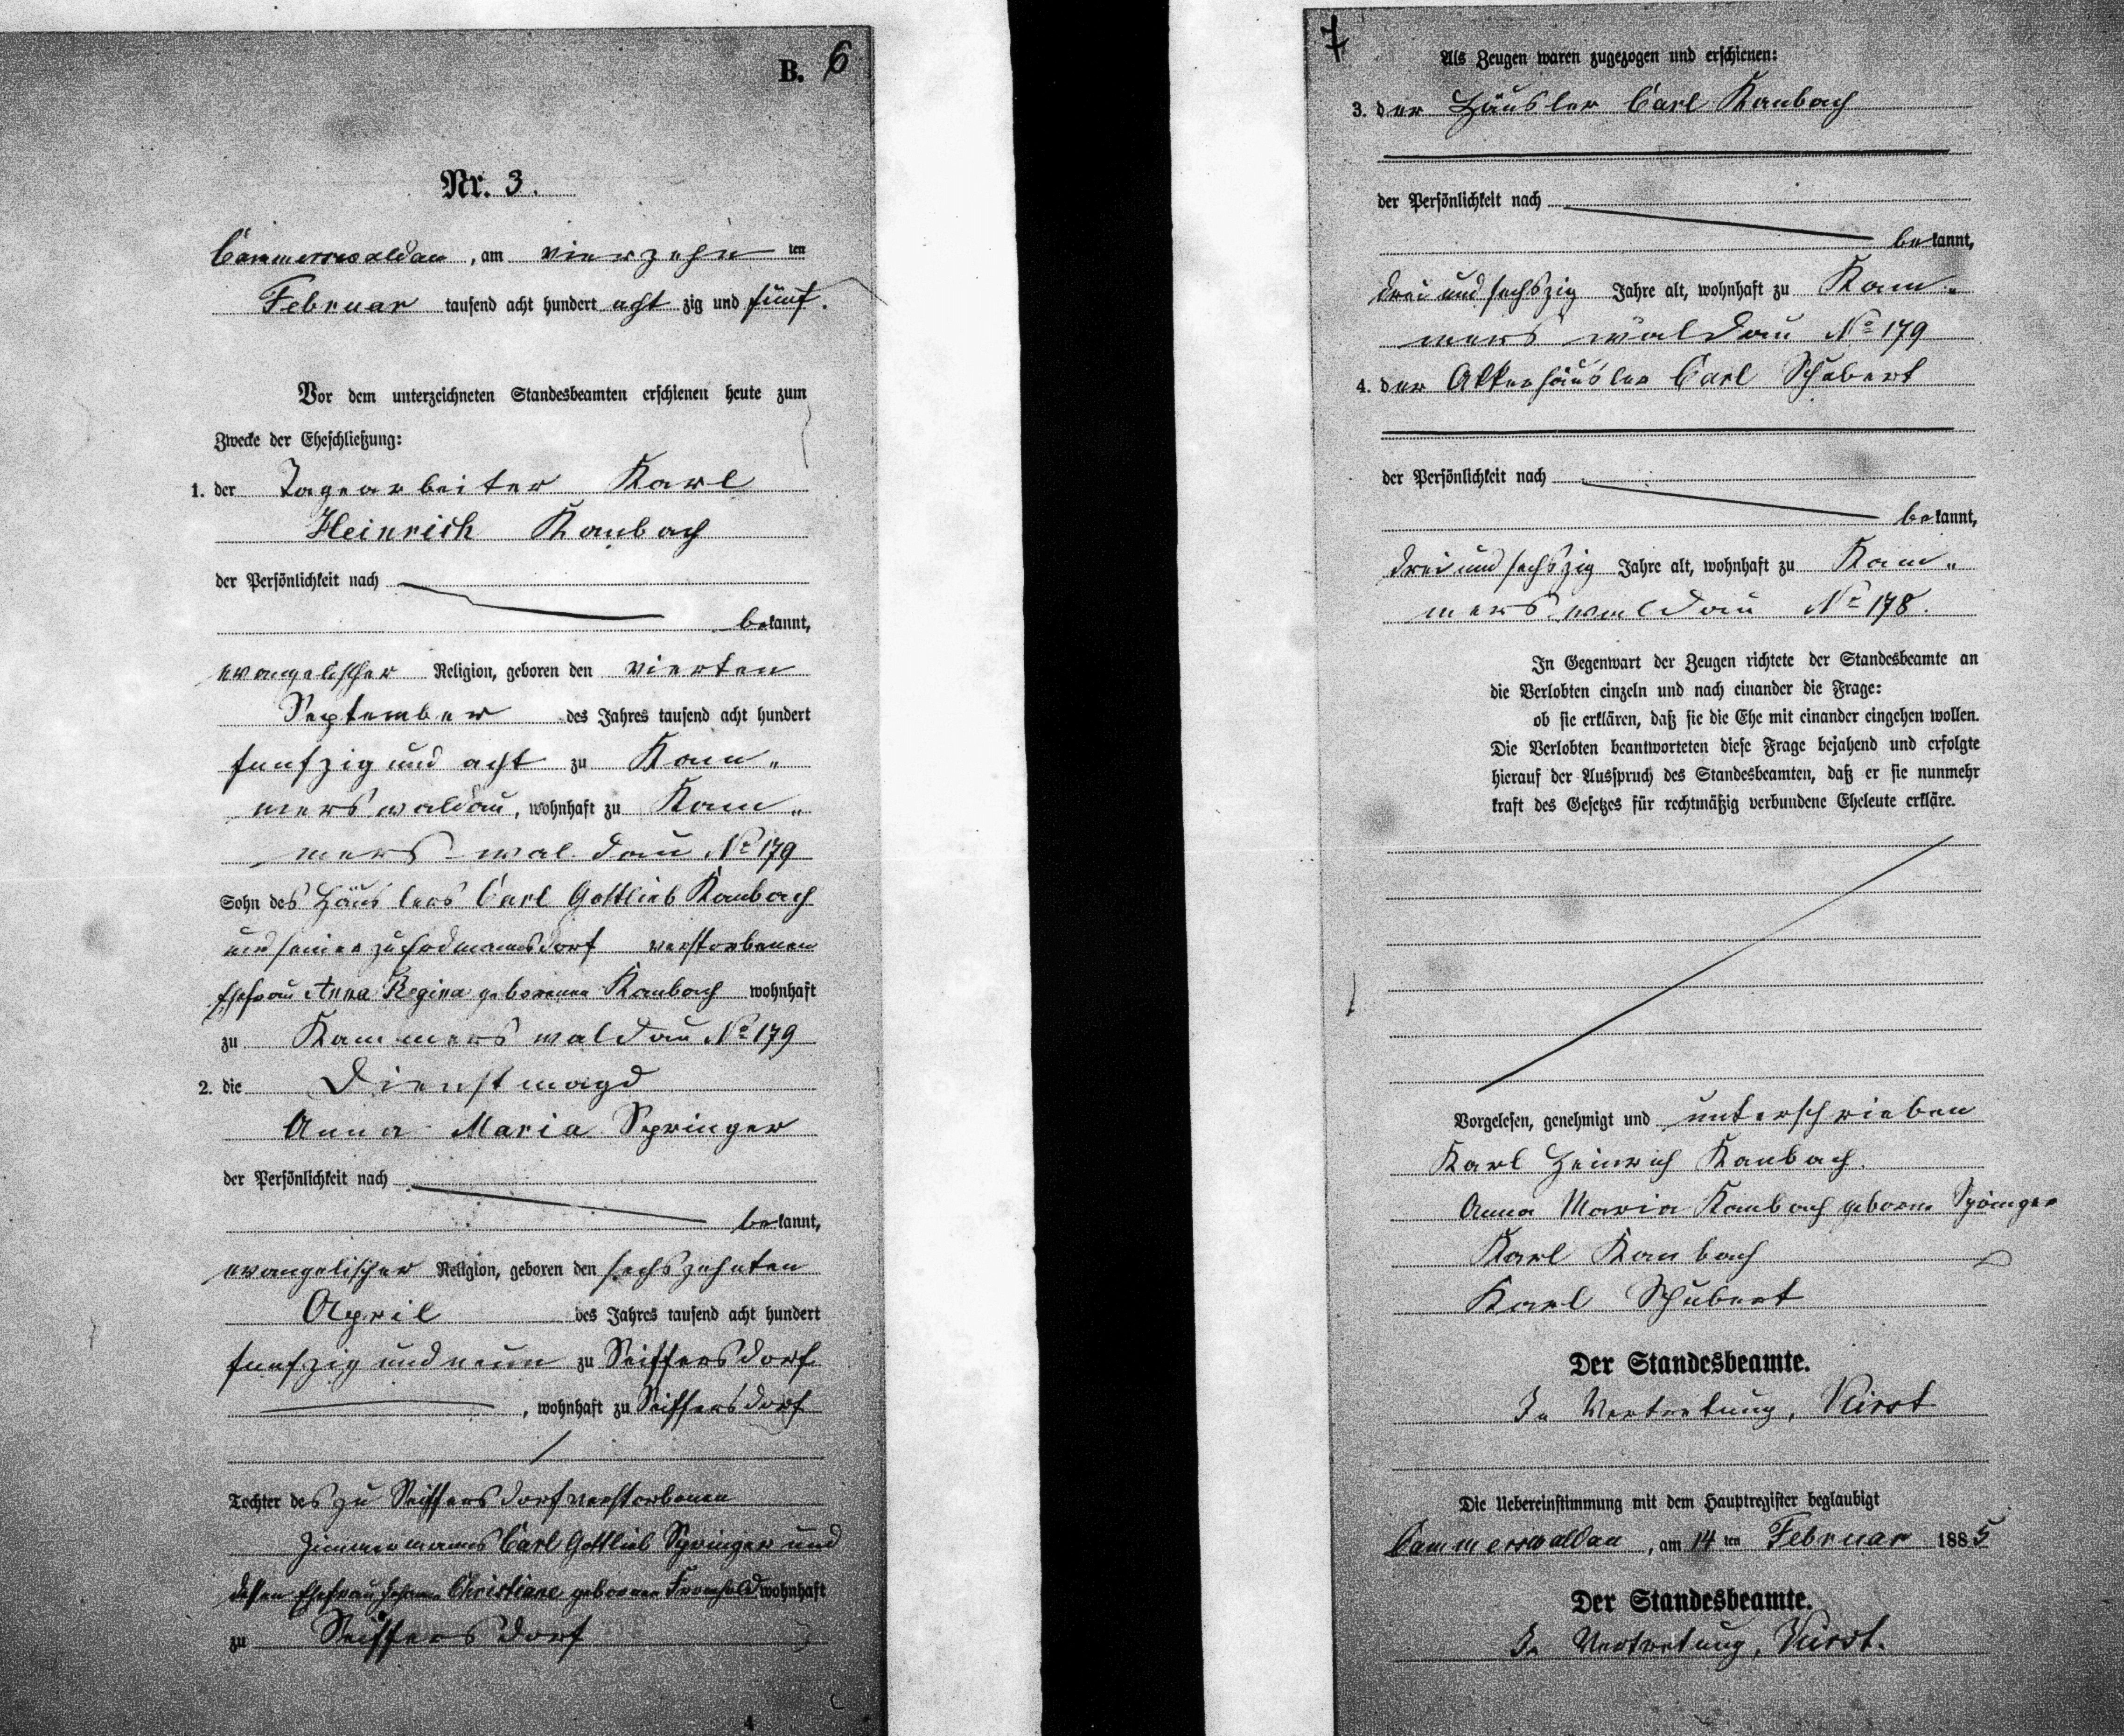 B. 6
Nr. 3.
Cammerswaldau, am vierzehn ten
Februar tausend acht hundert acht zig und fünf.
Vor dem unterzeichneten Standesbeamten erschienen heute zum
Zwecke der Eheschließung:
1. der Tagearbeiter Karl
Heinrich Kaubach
der Persönlichkeit nach
bekannt,
evangelischer Religion, geboren den vierten
September des Jahres tausend acht hundert
funfzig und acht zu Kam„
merswaldau, wohnhaft zu Kam„
merswaldau № 179
Sohn des Häuslers Carl Gottlieb Kaubach
und seiner zu verstorbenen
Ehefrau Anna Regina geborenen Kaubach wohnhaft
zu Kammerswaldau № 179
2. die Dienstmagd
Anna Maria Springer
der Persönlichkeit nach
bekannt,
evangelischer Religion, geboren den sechszehnten
April des Jahres tausend acht hundert
funfzig und neun zu Seiffersdorf
, wohnhaft zu Seiffersdorf
Tochter des zu Seiffersdorf verstorbenen
Zimmermanns Carl Gottlieb Springer und
dessen Ehefrau Johanne Christiane geborenen wohnhaft
zu Seiffersdorf
7
Als Zeugen waren zugezogen und erschienen:
3. der Häusler Carl Kaubach
der Persönlichkeit nach
bekannt,
drei und sechszig Jahre alt, wohnhaft zu Kam„
merswaldau № 179
4. der Ackerhäusler Carl Schubert
der Persönlichkeit nach
bekannt,
drei und sechszig Jahre alt, wohnhaft zu Kam„
merswaldau № 178.
In Gegenwart der Zeugen richtete der Standesbeamte an
die Verlobten einzeln und nach einander die Frage:
ob sie erklären, daß sie die Ehe mit einander eingehen wollen.
Die Verlobten beantworteten diese Frage bejahend und erfolgte
hierauf der Ausspruch des Standesbeamten, daß er sie nunmehr
kraft des Gesetzes für rechtmäßig verbundene Eheleute erkläre.
Vorgelesen, genehmigt und unterschrieben
Karl Heinrich Kaubach.
Anna Maria Kaubach geborne Springer
Karl Kaubach
Karl Schubert
Der Standesbeamte.
In Vertretung,
Die Uebereinstimmung mit dem Hauptregister beglaubigt
Cammerswaldau, am 14 ten Februar 1885
Der Standesbeamte.
In Vertretung,